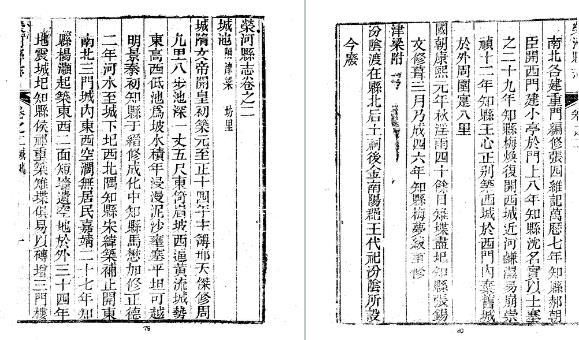 榮河縣志卷之二
城池 附津梁 坊里
城隋文帝開皇初築元至正十四年主簿邢天傑修周
九里八步池深一丈五尺東倚眉坡西逼黃流城勢
東高西低池為坡水積年浸漫泥沙壅塞平坦可越
明景泰初知縣于縉修成化中知縣馬懋加修正德
二年河水至城下圮西北隅知縣宋緯築補止開東
南北三門城內東西空濶無居民嘉靖二十七年知
縣楊灝起築東西二面短墻遺空地於外三十四年
地震城圮知縣侯祁重築雉堞俱易以磚增三門樓
南北各建重門 修張四維記萬曆 年知縣郝朝
臣開西門建小亭於門上八年知縣沈名實以土塞
之二十九年知縣梅煥復開西城近河鹻濕易崩崇
禎十二年知縣王心正別築西城於西門內棄舊城
於外周圍寔八里
國朝康熙元年秋淫雨四十餘日雉堞盡圮知縣張錫
文修葺三月乃成四六年知縣梅夢紱重修
津梁附
汾陰渡在縣北后土祠後金南陽郡王代祀汾陰所設
今廢
80